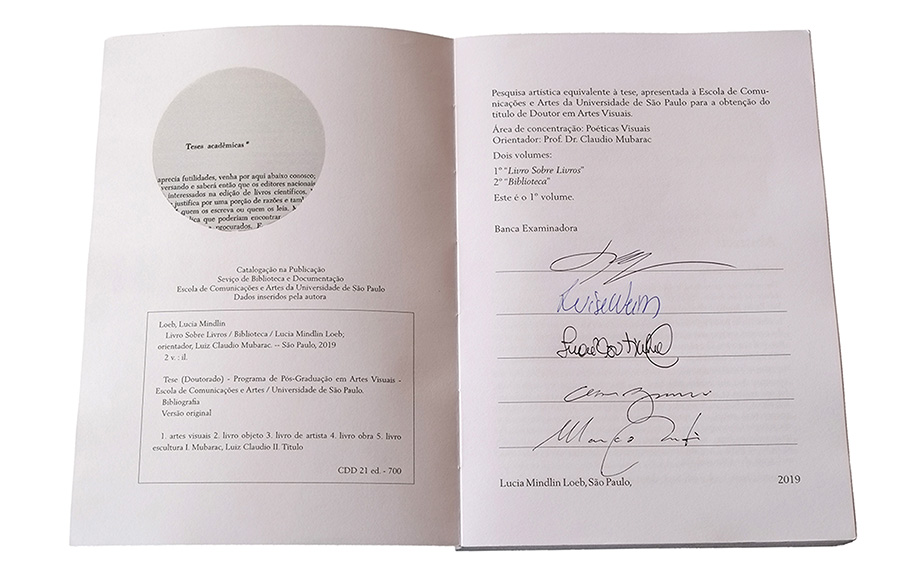 Teses acadêmicas *
aprecia futilidades, venha por aqui abaixo conosco;
versando e saberá então que os editores nacionais
interessados na edição de livros científicos.
justifica por uma porção de razões e tam
quem os escreva ou quem os leia.
lica que poderiam encontrar
procurados.
Catalogação na Publicação
Seviço de Biblioteca e Documentação
Escola de Comunicações e Artes da Universidade de São Paulo
Dados inseridos pela autora
Loeb, Lucia Mindlin
Livro Sobre Livros / Biblioteca / Lucia Mindlin Loeb;
orientador, Luiz Claudio Mubarac. -- São Paulo, 2019
2 v. : il.
Tese (Doutorado) - Programa de Pós-Graduação em Artes Visuais -
Escola de Comunicações e Artes / Universidade de São Paulo.
Bibliografia
Versão original
1. artes visuais 2. livro objeto 3. livro de artista 4. livro obra 5. livro
escultura I. Mubarac, Luiz Claudio II. Título
CDD 21 ed. - 700
Pesquisa artística equivalente à tese, apresentada à Escola de Comu-
nicações e Artes da Universidade de São Paulo para a obtenção do
título de Doutor em Artes Visuais.
Área de concentração: Poéticas Visuais
Orientador: Prof. Dr. Claudio Mubarac
Dois volumes:
1º “Livro Sobre Livros”
2º “Biblioteca”
Este é o 1º volume.
Banca Examinadora
Lucia Mindlin Loeb, São Paulo, 2019